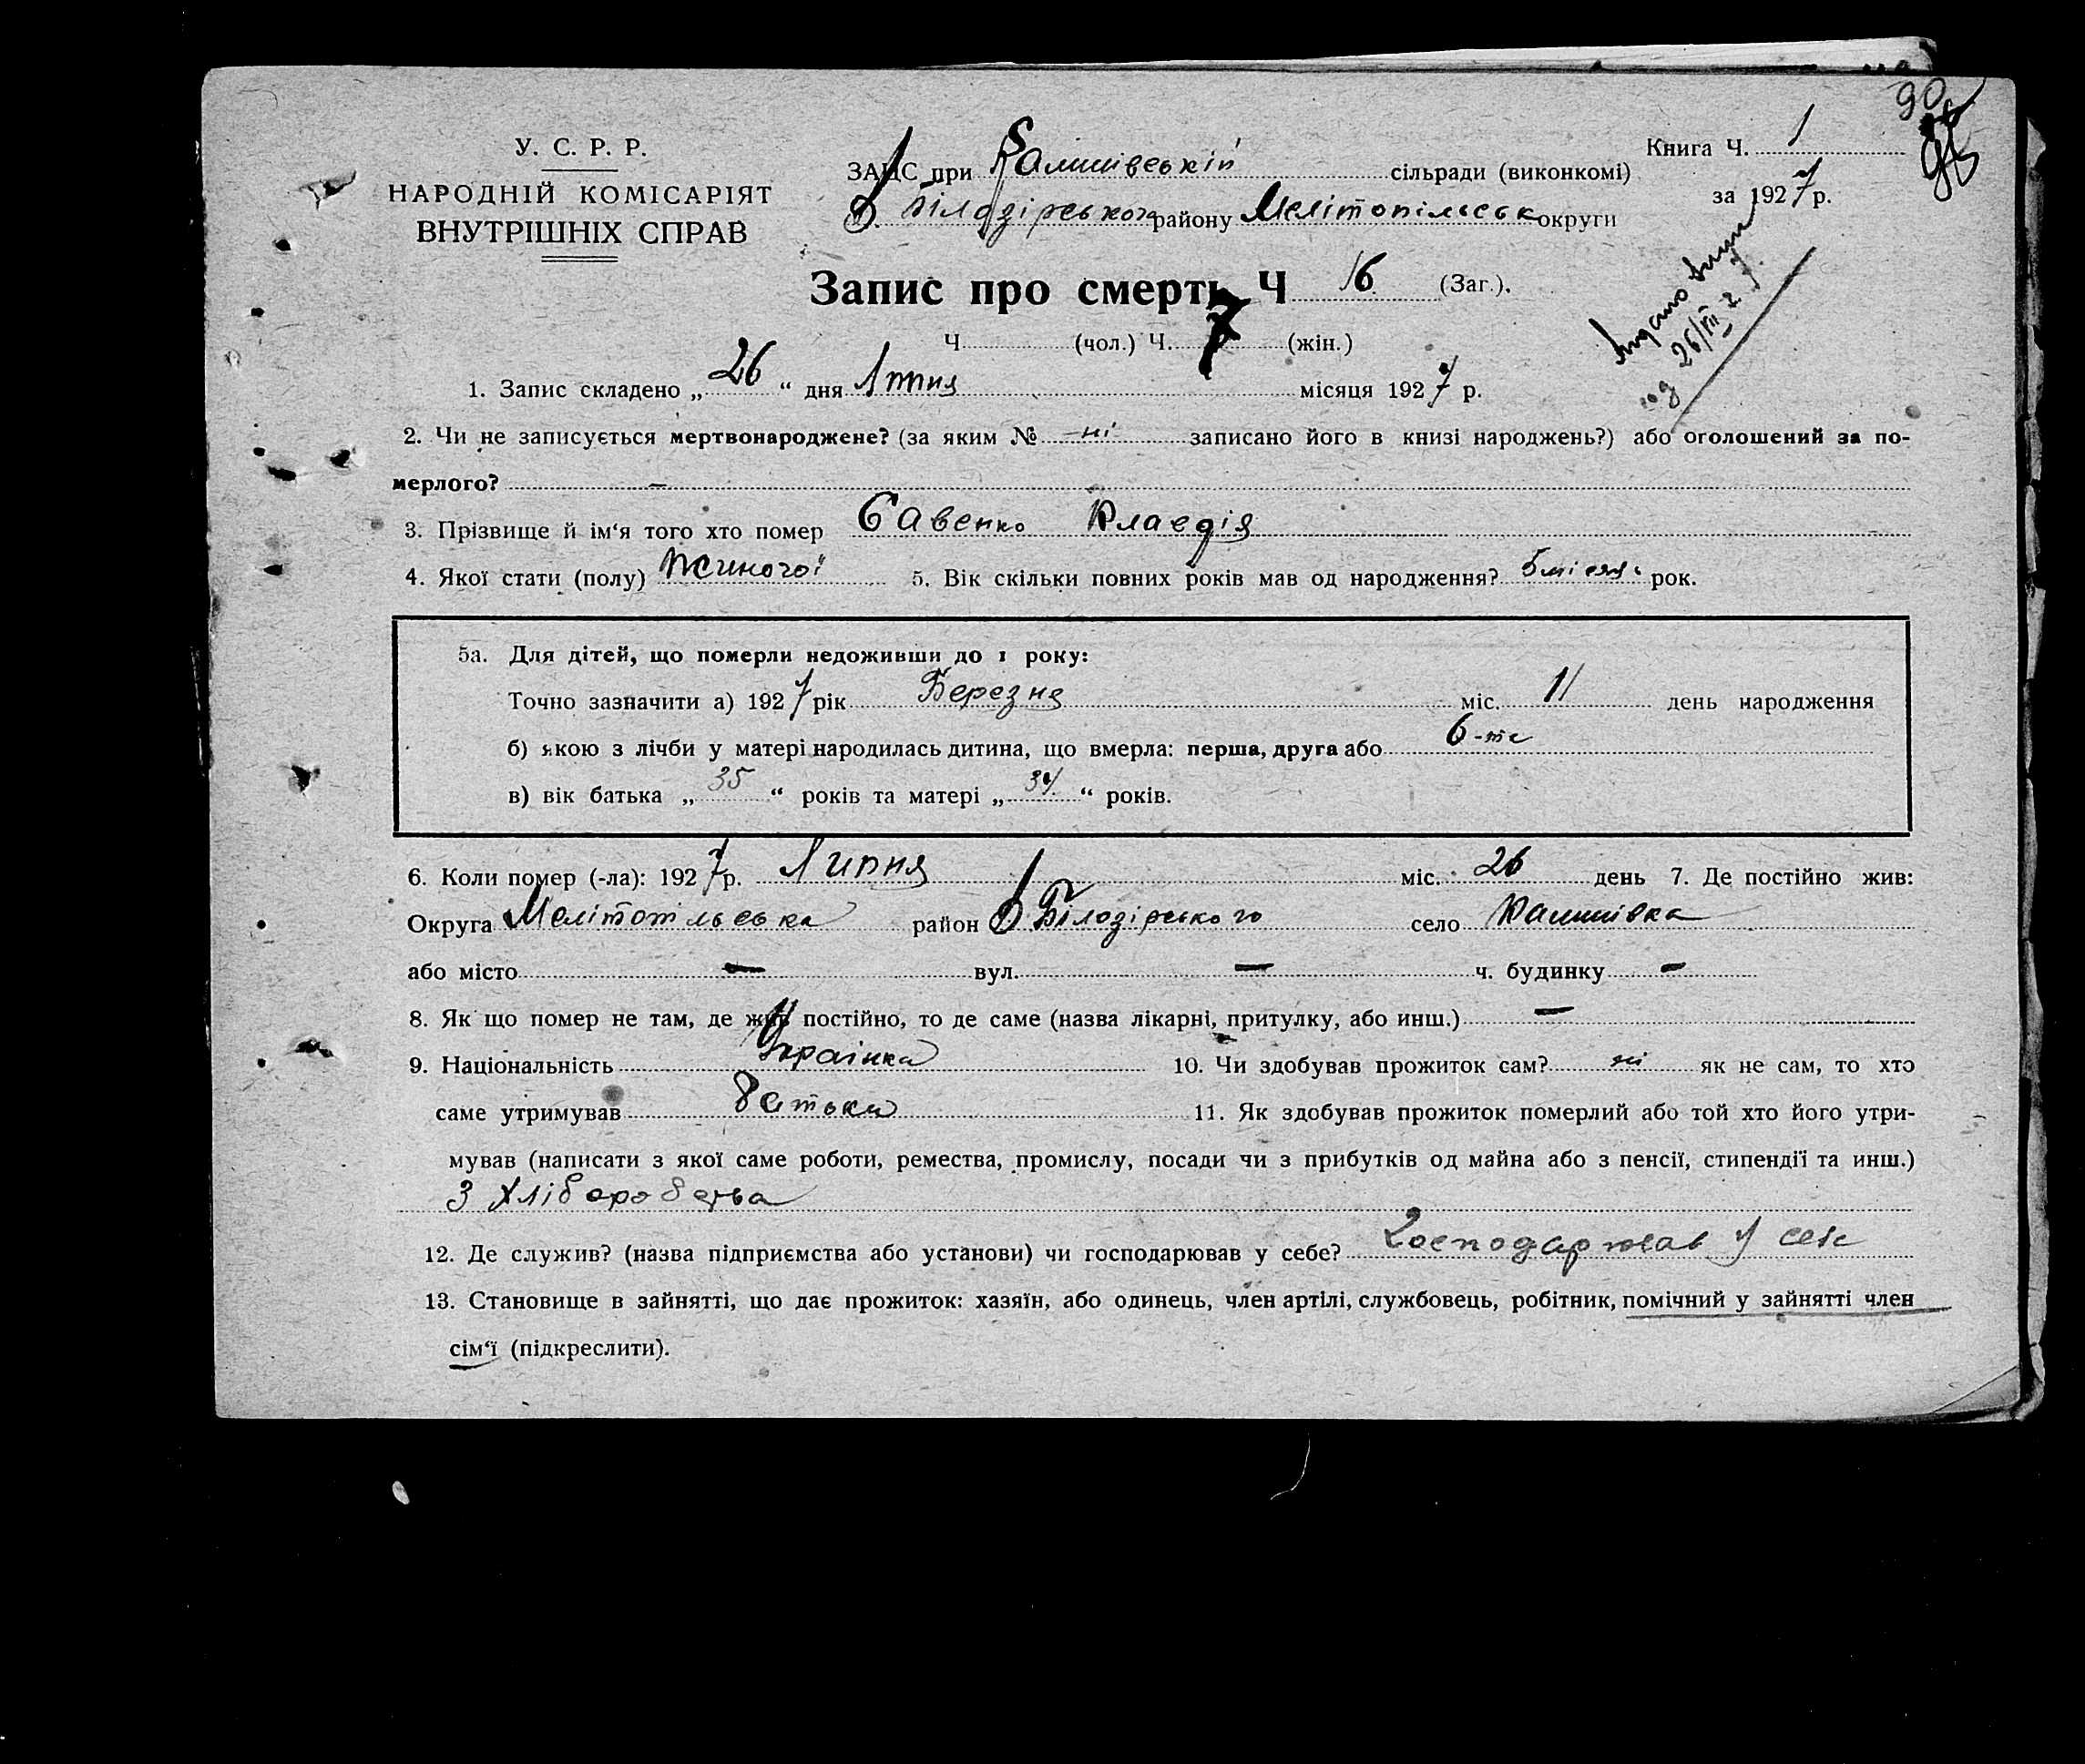 90
У. С. Р. Р.
НАРОДНІЙ КОМІСАРІЯТ
ВНУТРІШНІХ СПРАВ
ЗАГС при Камишівській сільради (виконкомі)
В. Білозірського району Мелітопільськ округи
Книга Ч. 1
за 1927 р.
Запис про смерть Ч 16 (Заг.).
Ч. (чол.) Ч. 7 (жін.)
26/VII 27
1. Запис складено „ 26 “ дня Липня місяця 1927 р.
2. Чи не записується мертвонароджене? (за яким № ні записано його в книзі народжень?) або оголошений за по-
мерлого? —
3. Прізвище й ім‘я того хто помер Савенко Клавдія
4. Якої стати (полу) Жиночої 5. Вік скільки повних років мав од народження? 5 місяц. рок.
5а. Для дітей, що померли недоживши до 1 року:
Точно зазначити а) 1927 рік Березня міс. 11 день народження
б) якою з лічби у матері народилась дитина, що вмерла: перша, друга або 6-та
в) вік батька „ 35 “ років та матері „ 34 “ років.
6. Коли помер (-ла): 1927 р. Липня міс. 26 день 7. Де постійно жив:
Округа Мелітопільська район В Білозірського село Камишівка
або місто — вул. — ч. будинку —
8. Як що помер не там, де жив постійно, то де саме (назва лікарні, притулку, або инш.) —
9. Національність Украінка 10. Чи здобував прожиток сам? ні як не сам, то хто
саме утримував батьки 11. Як здобував прожиток померлий або той хто його утри-
мував (написати з якої саме роботи, ремества, промислу, посади чи з прибутків од майна або з пенсії, стипендії та инш.)
З хліборобства
12. Де служив? (назва підприємства або установи) чи господарював у себе? Господарював у себе
13. Становище в зайнятті, що дає прожиток: хазяїн, або одинець, член артілі, службовець, робітник, помічний у зайнятті член
сім‘ї (підкреслити).